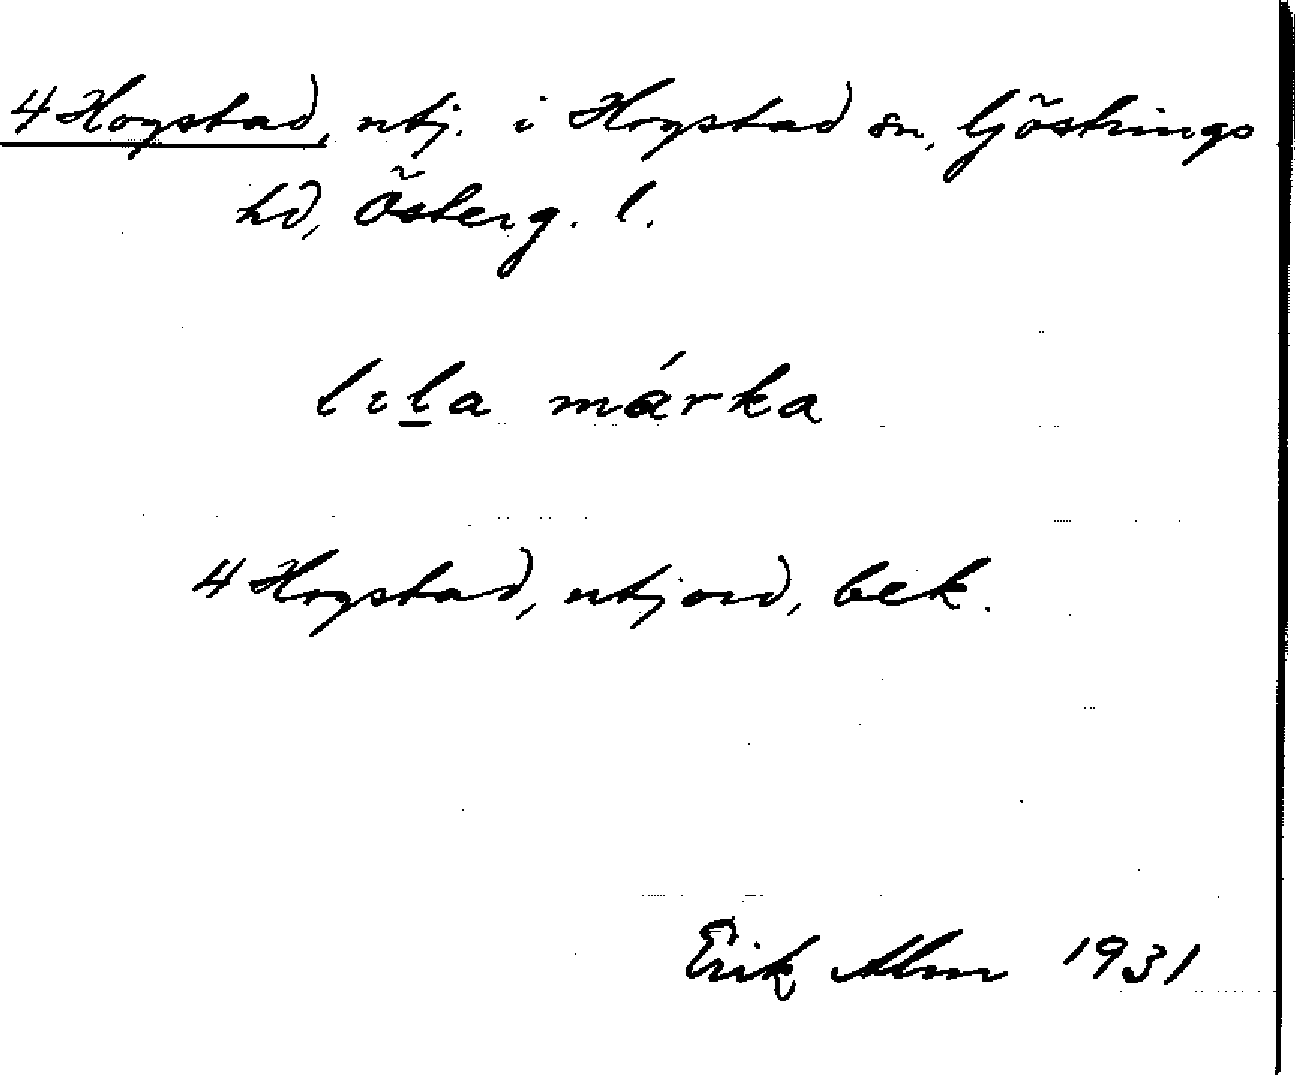 4 Hogstad, utj. i Hogstad sn, Göstrings
hd, Österg. l.
lila márka
4 Hogstad, utjord, bek.
Erik Alm 1931